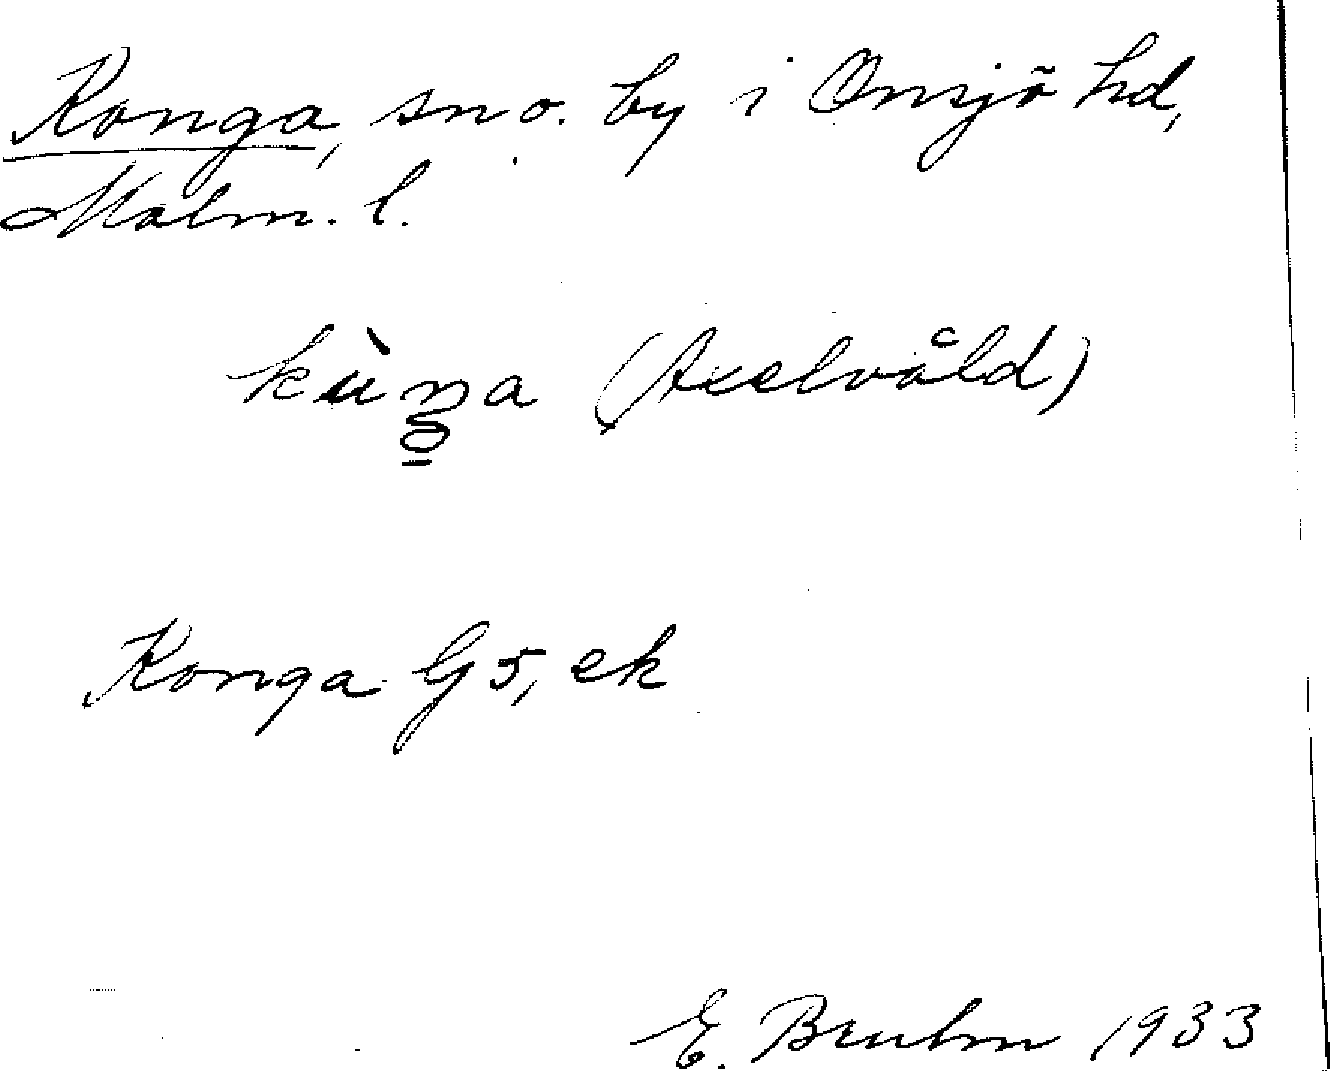 Konga, sn o. by i Onsjö hd,
Malm. l.
kùŋa (Axelvåld)
Konga G5, ek
E. Bruhn 1933